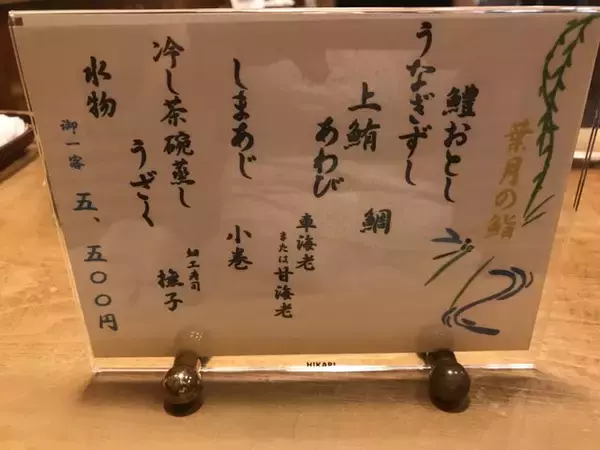 葉月の鮨
鱧おとし
うなぎずし
上鮪 鯛
あわび
車海老
または甘海老
しまあじ 小巻
冷し茶碗蒸し
うざく
細工寿司
撫子
水物
御一客 五、五〇〇円
HIKARI